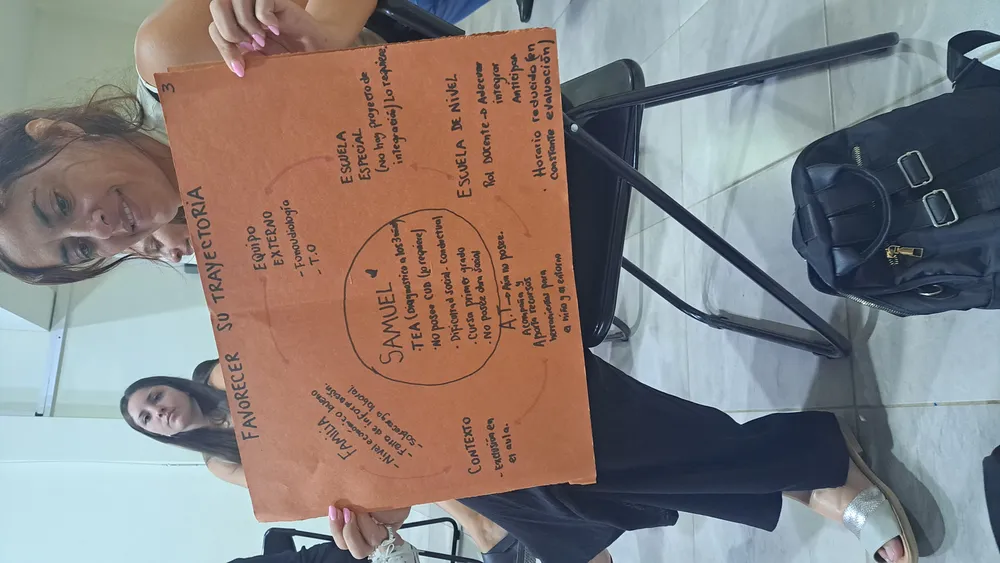 3
FAVORECER SU TRAYECTORIA
FAMILIA
- Nivel económico bueno
- Falta de información.
- sobrecarga laboral
EQUIPO
EXTERNO
- Fonoaudiología
- T.O
ESCUELA
ESPECIAL
(No hay proyecto de
integración) Lo requiere
SAMUEL
· TEA (diagnostico a los 3 años)
· No posee CUD (Lo requiere)
- Dificultad social - conductual
· Cursa primer grado
· No posee obra social
ESCUELA DE NIVEL
Rol DOCENTE → Adecuar
integrar
Anticipar
· Horario reducido (en
constante evaluación)
A.T → Aún no posee.
Acompaña y
Aporta recursos
herramientas para
el niño y el entorno
CONTEXTO
- Exclusión en
el aula.